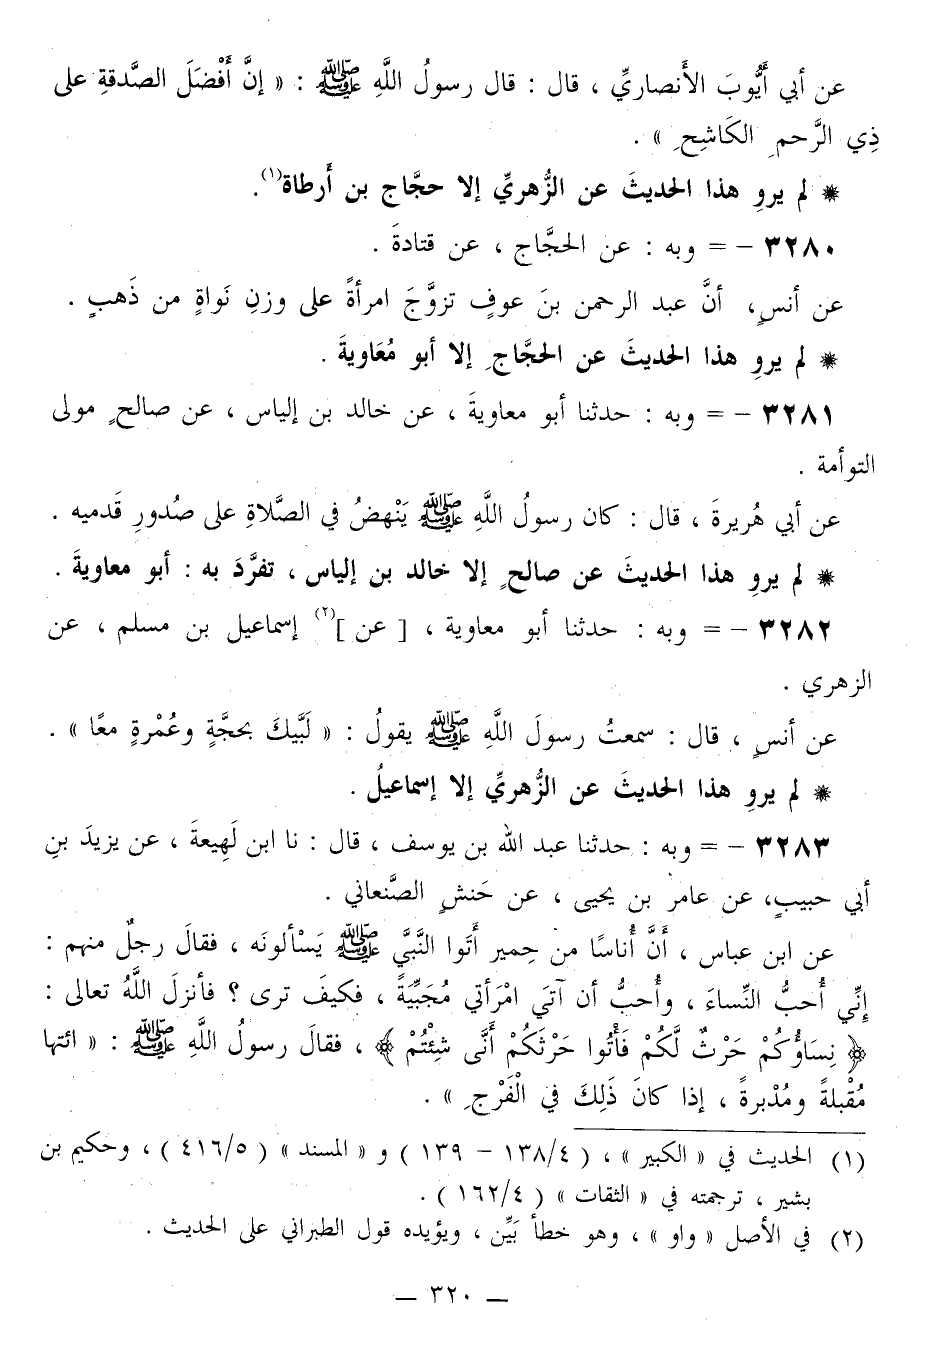 عن أبي أَيُّوبَ الأَنصاريِّ ، قال : قال رسولُ اللَّهِ ﷺ : « إنَّ أَفْضَلَ الصَّدقةِ على
ذِي الرَّحمِ الكَاشِحِ » .
* لم يروِ هذا الحديثَ عن الزُّهريِّ إلا حجَّاج بن أَرطاة(١).
٣٢٨٠ – = وبه : عن الحجَّاج ، عن قتادةَ .
عن أنسٍ، أنَّ عبد الرحمن بنَ عوفٍ تزوَّجَ امرأةً على وزنِ نَواةٍ من ذَهبٍ .
* لم يروِ هذا الحديثَ عن الحجَّاجِ إلا أبو مُعَاويةَ .
٣٢٨١ – = وبه : حدثنا أبو معاويةَ ، عن خالد بن إلياس ، عن صالحٍ مولى
التوأمة .
عن أبي هُريرةَ ، قال : كان رسولُ اللَّهِ ﷺ يَنْهضُ في الصَّلاةِ على صدُورِ قَدميه .
* لم يروِ هذا الحديثَ عن صالحٍ إلا خالد بن إلياس ، تفرَّدَ به : أبو معاويةَ .
٣٢٨٢ – = وبه : حدثنا أبو معاوية ، [ عن ](٢) إسماعيل بن مسلم ، عن
الزهري .
عن أنسٍ ، قال : سمعتُ رسولَ اللَّهِ ﷺ يقولُ : « لَبَّيكَ بحجَّةٍ وعُمْرةٍ معًا » .
* لم يروِ هذا الحديثَ عن الزُّهريِّ إلا إسماعيلُ .
٣٢٨٣ – = وبه : حدثنا عبد الله بن يوسف ، قال : نا ابن لَهِيعةَ ، عن يزيدَ بنِ
أبي حبيبٍ، عن عامر بن يحيى ، عن حَنشٍ الصَّنعاني .
عن ابن عباس ، أَنَّ أُناسًا من حِمير أَتَوا النَّبيَّ ﷺ يَسْألونَه ، فقالَ رجلٌ منهم :
إنِّي أُحبُّ النِّساءَ ، وأُحبُّ أن آتيَ امْرَأتي مُجَبِّيَةً ، فكيفَ ترى ؟ فأنزلَ اللَّهُ تعالى :
﴿ نِسَاؤُكُمْ حَرْثٌ لَّكُمْ فَأْتُوا حَرْثَكُمْ أَنَّى شِئْتُمْ ﴾ ، فقالَ رسولُ اللَّهِ ﷺ : « ائتها
مُقْبلةً ومُدْبرةً ، إذا كانَ ذَلِكَ في الْفَرْجِ » .
(١) الحديث في « الكبير » ، ( ١٣٨/٤ – ١٣٩ ) و « المسند » ( ٤١٦/٥ ) ، وحكيم بن
بشير ، ترجمته في « الثقات » ( ١٦٢/٤ ) .
(٢) في الأصل « واو » ، وهو خطأ بَيِّن ، ويؤيده قول الطبراني على الحديث .
– ٣٢٠ –